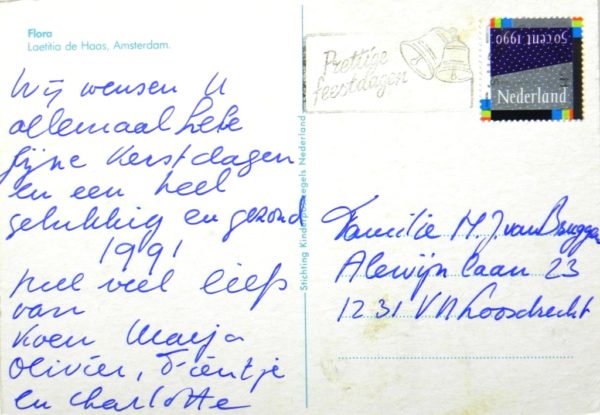 Flora
Laetitia de Haas, Amsterdam.
Wij wensen U
allemaal hele
fijne Kerstdagen
en een heel
gelukkig en gezond
1991
heel veel liefs
van
Koen Marja
Olivier, Fientje
en charlotte
Stichting Kinderpostzegels Nederland
Prettige
feestdagen
50 cent 1990
Nederland
Familie M.J. van Brugge
Alewijnlaan 23
1231 VN Loosdrecht